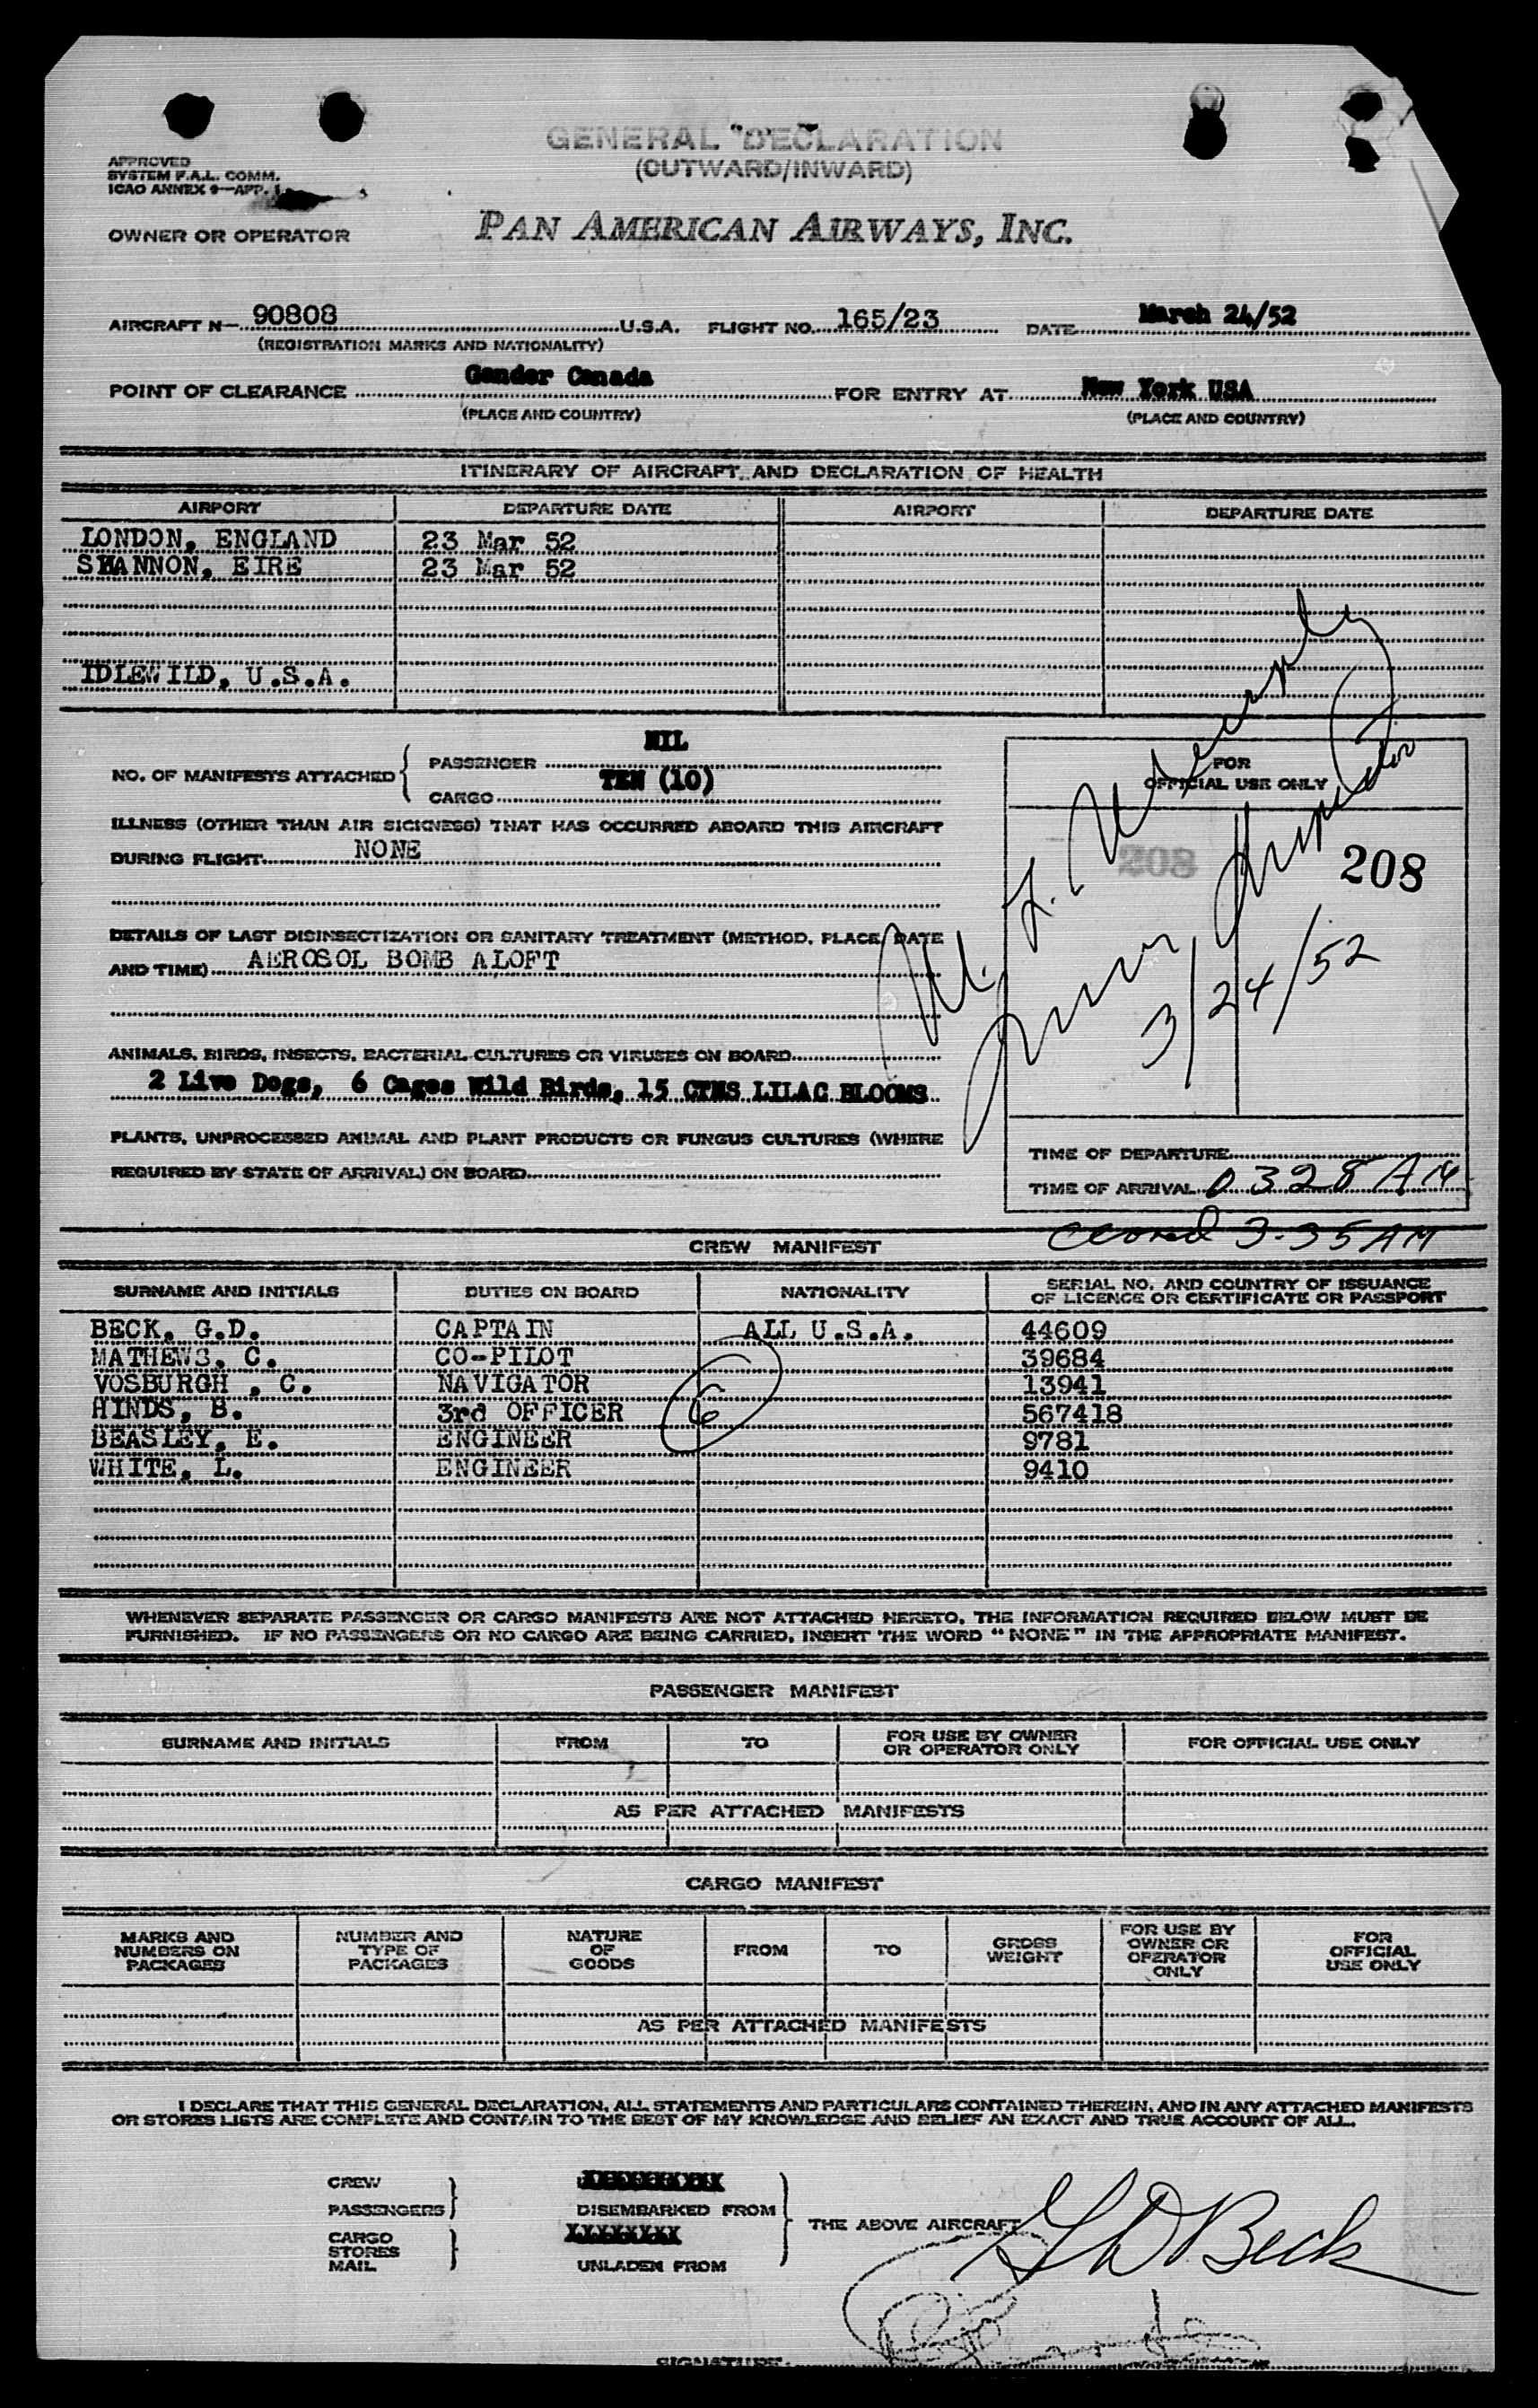 GENERAL DECLARATION
(OUTWARD/INWARD)
APPROVED
SYSTEM F.A.L. COMM.
ICAO ANNEX 9—APP. 1
OWNER OR OPERATOR PAN AMERICAN AIRWAYS, INC.
AIRCRAFT N— 90808 U.S.A. FLIGHT NO. 165/23 DATE March 24/52
(REGISTRATION MARKS AND NATIONALITY)
POINT OF CLEARANCE Gander Canada FOR ENTRY AT New York USA
(PLACE AND COUNTRY) (PLACE AND COUNTRY)
ITINERARY OF AIRCRAFT AND DECLARATION OF HEALTH
AIRPORT DEPARTURE DATE AIRPORT DEPARTURE DATE
LONDON, ENGLAND 23 Mar 52
SHANNON, EIRE 23 Mar 52
IDLEWILD, U.S.A.
NO. OF MANIFESTS ATTACHED { PASSENGER NIL
CARGO TEN (10)
ILLNESS (OTHER THAN AIR SICKNESS) THAT HAS OCCURRED ABOARD THIS AIRCRAFT
DURING FLIGHT NONE
DETAILS OF LAST DISINSECTIZATION OR SANITARY TREATMENT (METHOD, PLACE, DATE
AND TIME) AEROSOL BOMB ALOFT
ANIMALS, BIRDS, INSECTS, BACTERIAL CULTURES OR VIRUSES ON BOARD
2 Live Dogs, 6 Cages Wild Birds, 15 CTNS LILAC BLOOMS
PLANTS, UNPROCESSED ANIMAL AND PLANT PRODUCTS OR FUNGUS CULTURES (WHERE
REQUIRED BY STATE OF ARRIVAL) ON BOARD
FOR
OFFICIAL USE ONLY
208 208
3/24/52
TIME OF DEPARTURE
TIME OF ARRIVAL 0328 AM
3-35 AM
CREW MANIFEST
SURNAME AND INITIALS DUTIES ON BOARD NATIONALITY SERIAL NO. AND COUNTRY OF ISSUANCE
OF LICENCE OR CERTIFICATE OR PASSPORT
BECK, G.D. CAPTAIN ALL U.S.A. 44609
MATHEWS, C. CO-PILOT 39684
VOSBURGH , C. NAVIGATOR 13941
HINDS, B. 3rd OFFICER 6 567418
BEASLEY, E. ENGINEER 9781
WHITE, L. ENGINEER 9410
WHENEVER SEPARATE PASSENGER OR CARGO MANIFESTS ARE NOT ATTACHED HERETO, THE INFORMATION REQUIRED BELOW MUST BE
FURNISHED. IF NO PASSENGERS OR NO CARGO ARE BEING CARRIED, INSERT THE WORD "NONE" IN THE APPROPRIATE MANIFEST.
PASSENGER MANIFEST
SURNAME AND INITIALS FROM TO FOR USE BY OWNER
OR OPERATOR ONLY FOR OFFICIAL USE ONLY
AS PER ATTACHED MANIFESTS
CARGO MANIFEST
MARKS AND
NUMBERS ON
PACKAGES NUMBER AND
TYPE OF
PACKAGES NATURE
OF
GOODS FROM TO GROSS
WEIGHT FOR USE BY
OWNER OR
OPERATOR
ONLY FOR
OFFICIAL
USE ONLY
AS PER ATTACHED MANIFESTS
I DECLARE THAT THIS GENERAL DECLARATION, ALL STATEMENTS AND PARTICULARS CONTAINED THEREIN, AND IN ANY ATTACHED MANIFESTS
OR STORES LISTS ARE COMPLETE AND CONTAIN TO THE BEST OF MY KNOWLEDGE AND BELIEF AN EXACT AND TRUE ACCOUNT OF ALL.
CREW
PASSENGERS DISEMBARKED FROM
CARGO
STORES
MAIL UNLADEN FROM
THE ABOVE AIRCRAFT
G D Beck
SIGNATURE